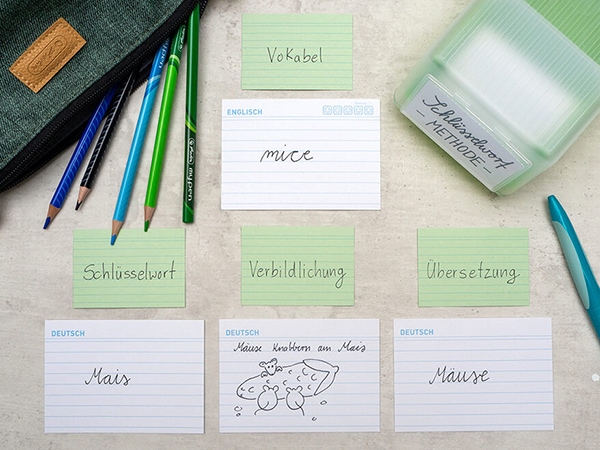 Vokabel
ENGLISCH
mice
Schlüsselwort
- METHODE -
my pen
Schlüsselwort
Verbildlichung
Übersetzung
DEUTSCH
Mais
DEUTSCH
Mäuse Knabbern am Mais
DEUTSCH
Mäuse